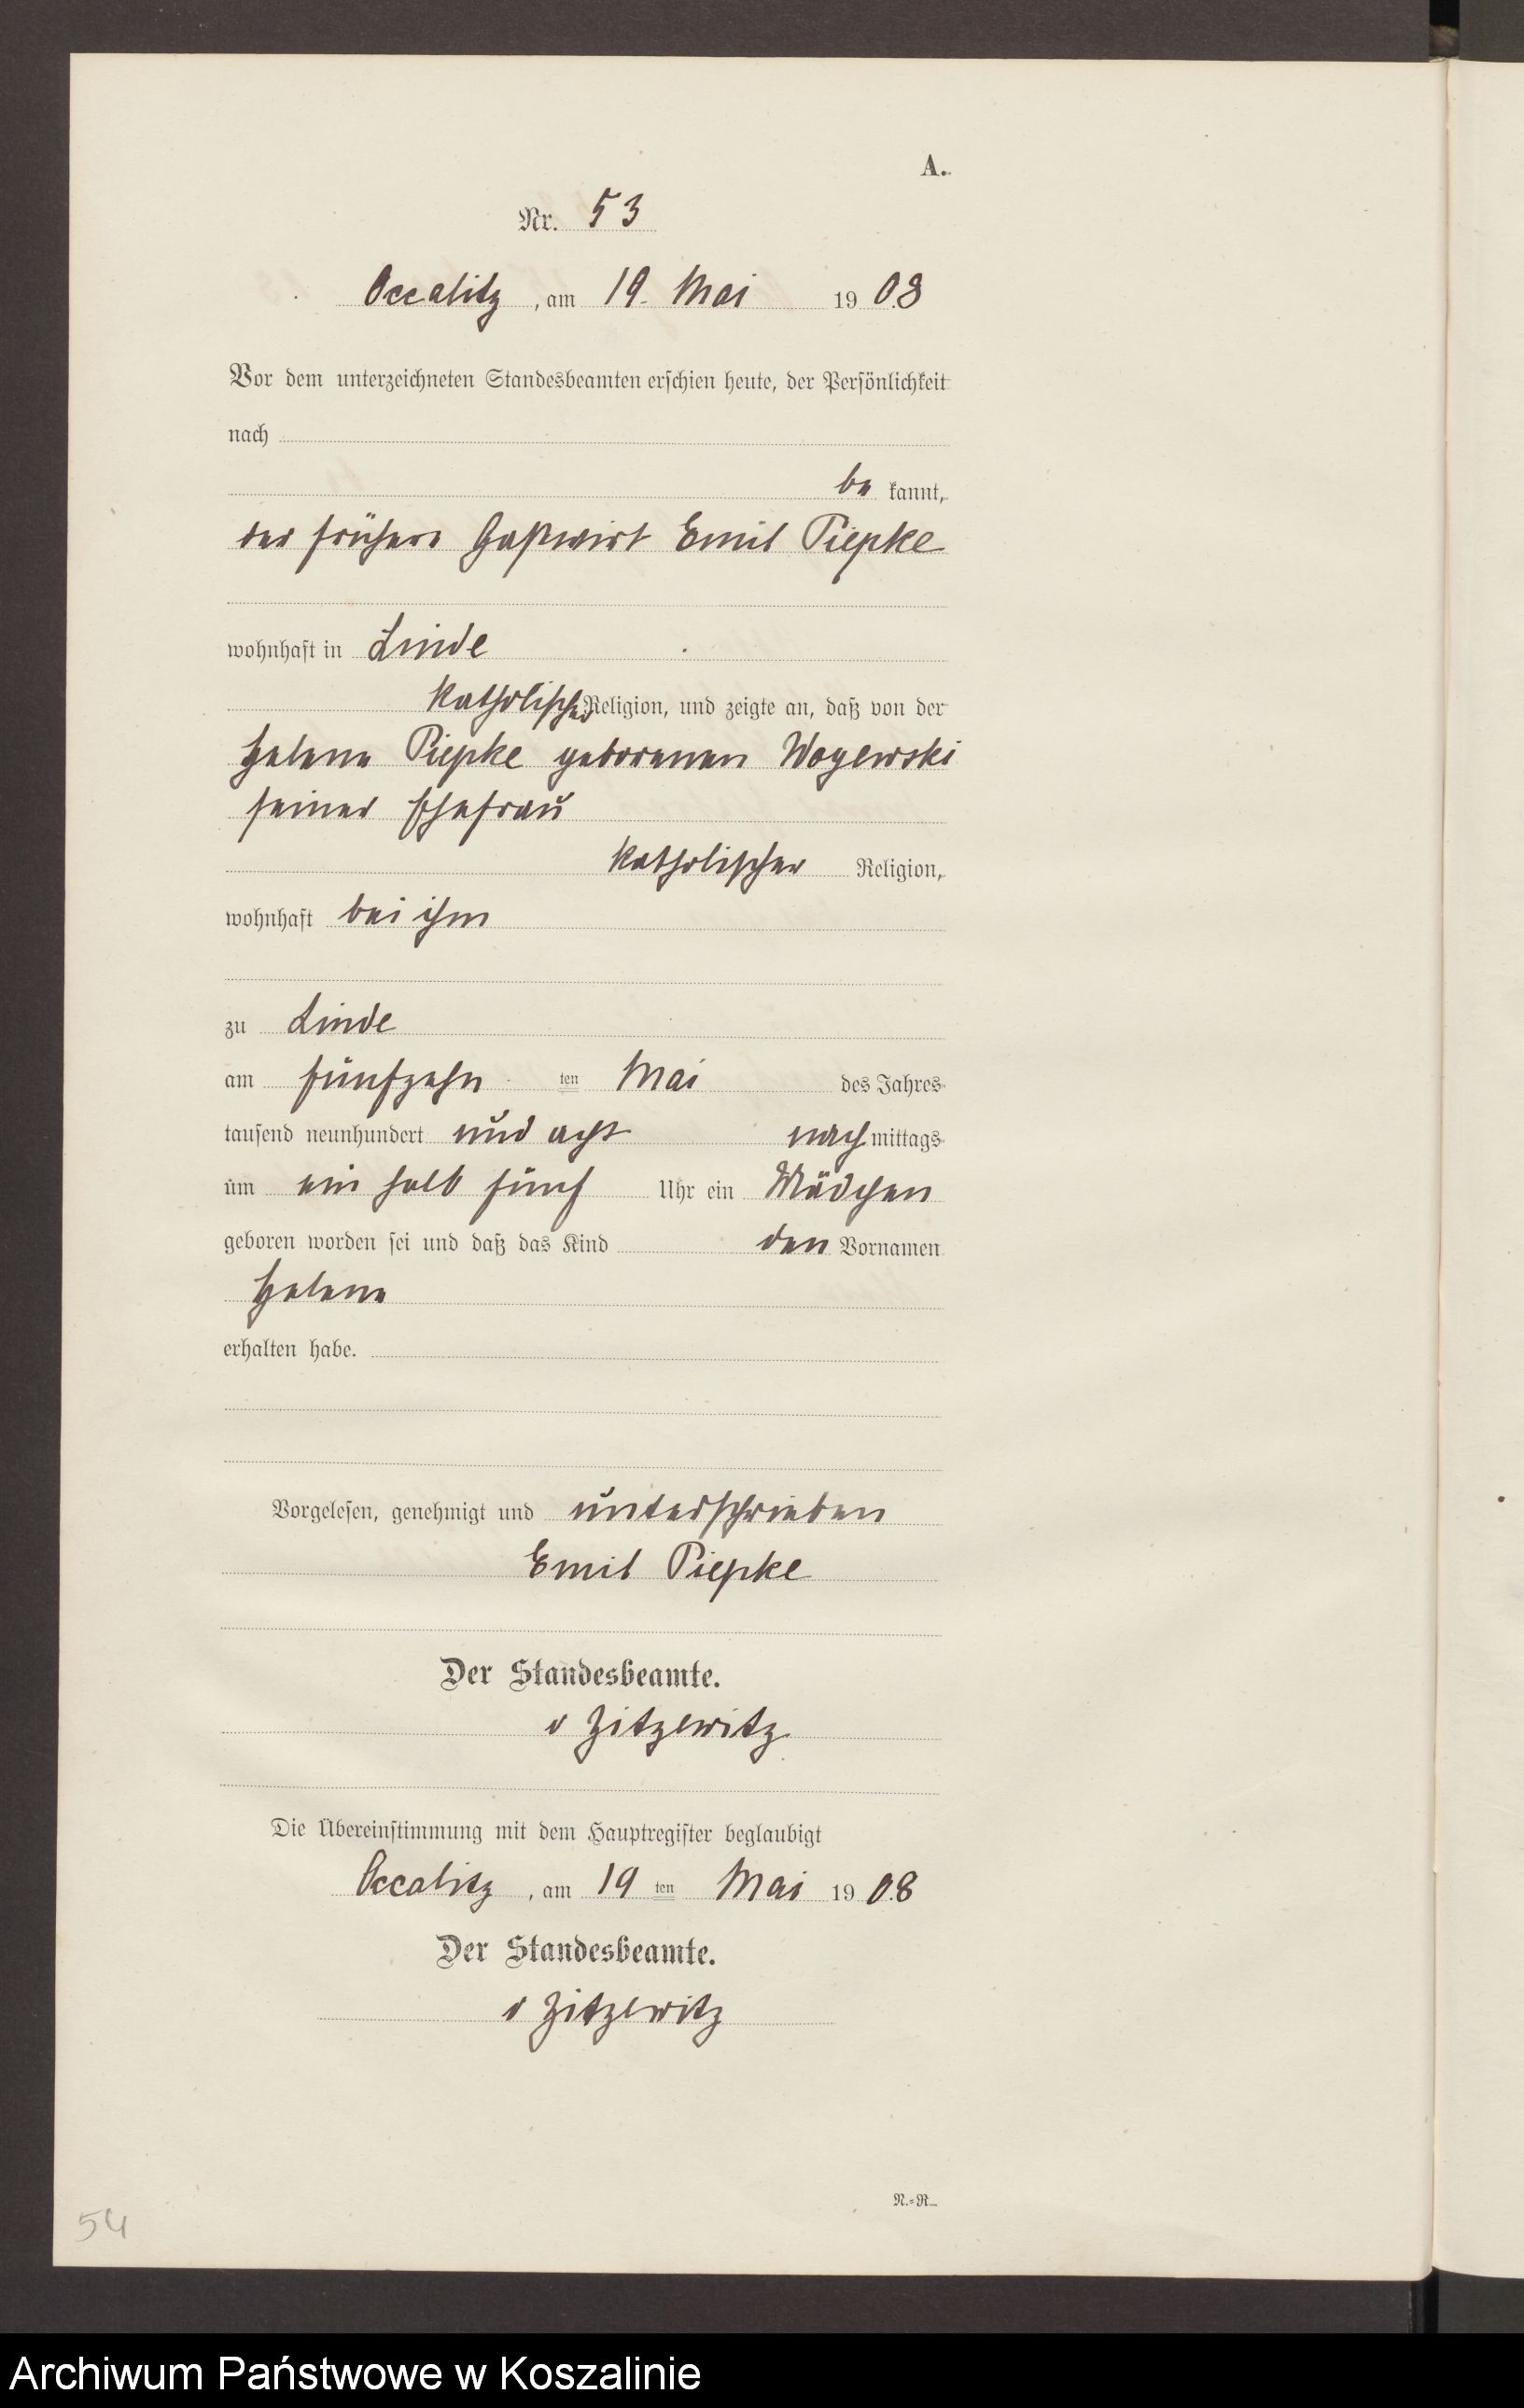 A.
Nr. 53
Occalitz, am 19. Mai 1908
Vor dem unterzeichneten Standesbeamten erschien heute, der Persönlichkeit
nach
be kannt,
der frühere Gastwirt Emil Piepke
wohnhaft in Linde
katholischer Religion, und zeigte an, daß von der
Helene Piepke geborenen Woyewski
seiner Ehefrau
katholischer Religion,
wohnhaft bei ihm
zu Linde
am fünfzehn ten Mai des Jahres
tausend neunhundert und acht nach mittags
um ein halb fünf Uhr ein Mädchen
geboren worden sei und daß das Kind den Vornamen
Helene
erhalten habe.
Vorgelesen, genehmigt und unterschrieben
Emil Piepke
Der Standesbeamte.
v Zitzewitz
Die Übereinstimmung mit dem Hauptregister beglaubigt
Occalitz, am 19 ten Mai 1908
Der Standesbeamte.
v Zitzewitz
N.=R.
54
Archiwum Państwowe w Koszalinie